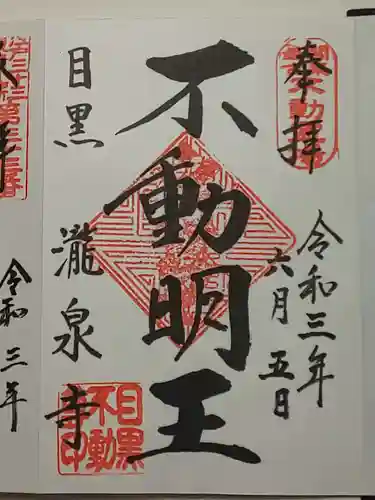 奉拝
令和三年
六月五日
不動明王
目黒
瀧泉寺
目黒
不動
令和三年